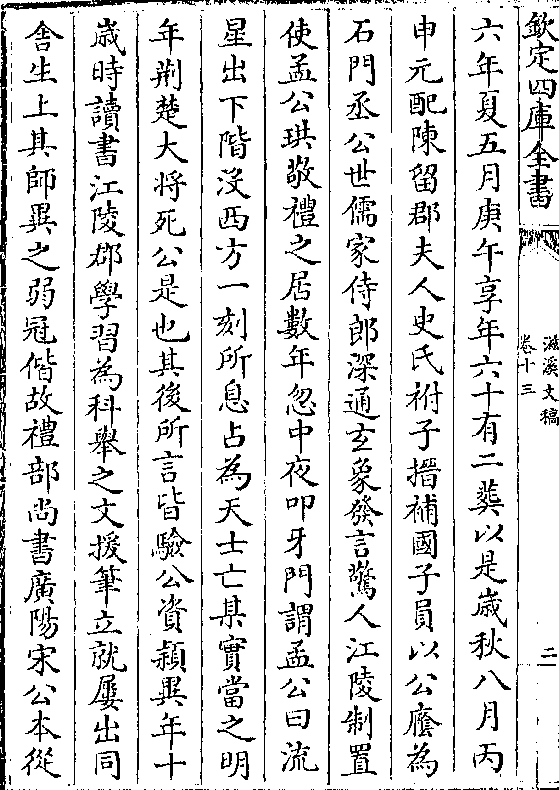 欽定四庫全書
滋溪文稿
卷十三
二
六年夏五月庚午享年六十有二葬以是歲秋八月丙
申元配陳留郡夫人史氏祔子搢補國子員以公廕為
石門丞公世儒家侍郎深通玄象發言驚人江陵制置
使孟公珙敬禮之居數年忽中夜叩牙門謂孟公曰流
星出下階沒西方一刻所息占為天士亡某實當之明
年荆楚大将死公是也其後所言皆驗公資頴異年十
歲時讀書江陵郡學習為科舉之文援筆立就屢出同
舍生上其師異之弱冠偕故禮部尚書廣陽宋公本從